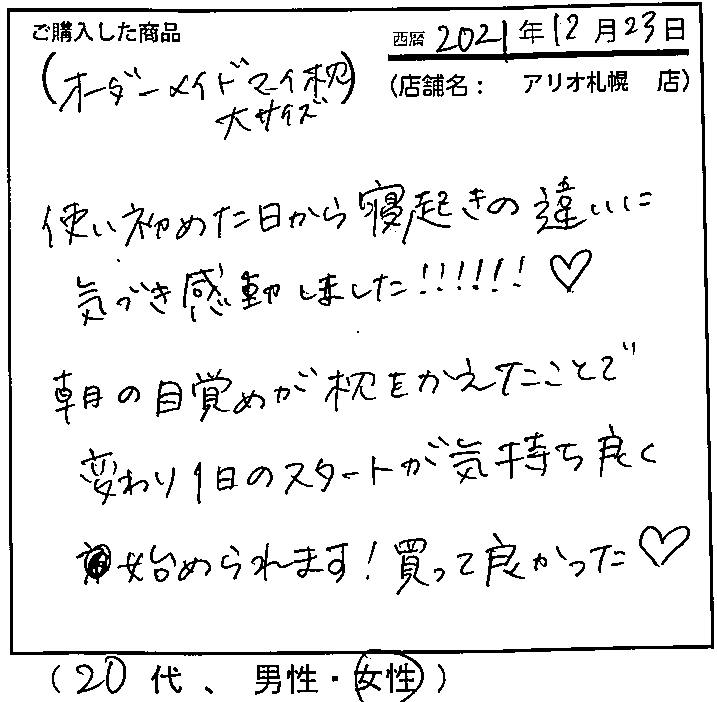 ご購入した商品
西暦 2021年12月23日
(オーダーメイドマイ枕)
大サイズ
(店舗名: アリオ札幌 店)
使い初めた日から寝起きの違いに
気づき感動しました!!!!!!♡
朝の目覚めが枕をかえたことで
変わり1日のスタートが気持ち良く
始められます!買って良かった♡
(20代、男性・女性)